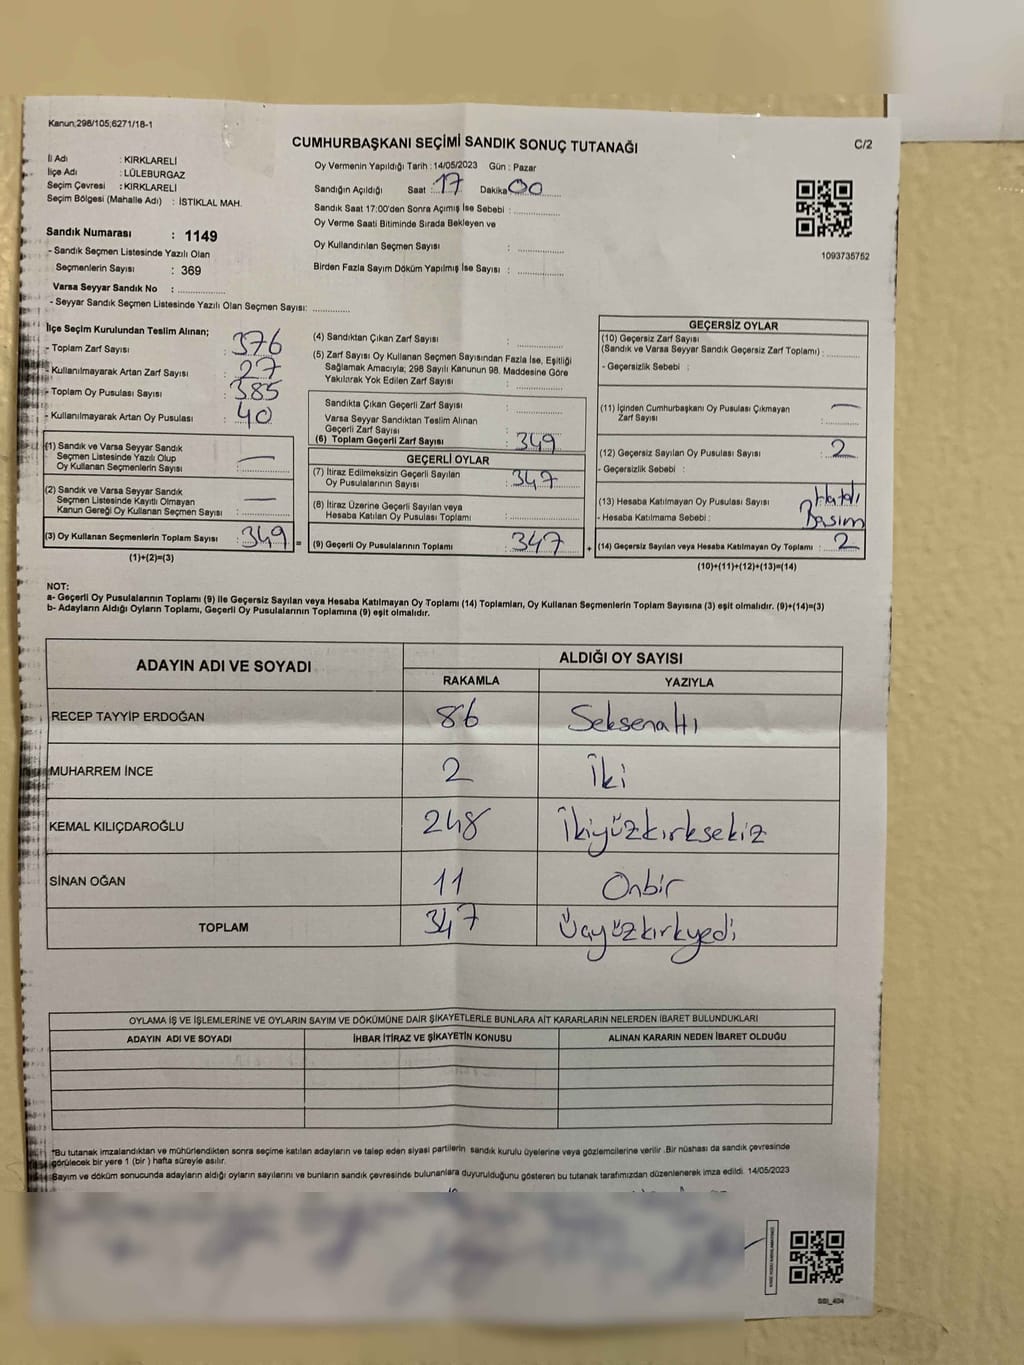 Kanun;298/105;6271/18-1
CUMHURBAŞKANI SEÇİMİ SANDIK SONUÇ TUTANAĞI
C/2
İl Adı : KIRKLARELİ
İlçe Adı : LÜLEBURGAZ
Seçim Çevresi : KIRKLARELİ
Seçim Bölgesi (Mahalle Adı) : İSTİKLAL MAH.
Oy Vermenin Yapıldığı Tarih : 14/05/2023 Gün : Pazar
Sandığın Açıldığı Saat : 17 Dakika 00
Sandık Saat 17:00'den Sonra Açımış İse Sebebi :
Oy Verme Saati Bitiminde Sırada Bekleyen ve
Oy Kullandırılan Seçmen Sayısı :
Birden Fazla Sayım Döküm Yapılmış İse Sayısı :
1093735752
Sandık Numarası : 1149
- Sandık Seçmen Listesinde Yazılı Olan
Seçmenlerin Sayısı : 369
Varsa Seyyar Sandık No :
- Seyyar Sandık Seçmen Listesinde Yazılı Olan Seçmen Sayısı:
İlçe Seçim Kurulundan Teslim Alınan;
- Toplam Zarf Sayısı : 376
- Kullanılmayarak Artan Zarf Sayısı : 27
- Toplam Oy Pusulası Sayısı : 385
- Kullanılmayarak Artan Oy Pusulası : 40
(1) Sandık ve Varsa Seyyar Sandık
Seçmen Listesinde Yazılı Olup
Oy Kullanan Seçmenlerin Sayısı : —
(2) Sandık ve Varsa Seyyar Sandık
Seçmen Listesinde Kayıtlı Olmayan
Kanun Gereği Oy Kullanan Seçmen Sayısı : —
(3) Oy Kullanan Seçmenlerin Toplam Sayısı : 349
(1)+(2)=(3)
(4) Sandıktan Çıkan Zarf Sayısı :
(5) Zarf Sayısı Oy Kullanan Seçmen Sayısından Fazla İse, Eşitliği
Sağlamak Amacıyla; 298 Sayılı Kanunun 98. Maddesine Göre
Yakılarak Yok Edilen Zarf Sayısı :
Sandıkta Çıkan Geçerli Zarf Sayısı :
Varsa Seyyar Sandıktan Teslim Alınan
Geçerli Zarf Sayısı :
(6) Toplam Geçerli Zarf Sayısı : 349
GEÇERLİ OYLAR
(7) İtiraz Edilmeksizin Geçerli Sayılan
Oy Pusulalarının Sayısı : 347
(8) İtiraz Üzerine Geçerli Sayılan veya
Hesaba Katılan Oy Pusulası Toplamı :
= (9) Geçerli Oy Pusulalarının Toplamı : 347
GEÇERSİZ OYLAR
(10) Geçersiz Zarf Sayısı
(Sandık ve Varsa Seyyar Sandık Geçersiz Zarf Toplamı) :
- Geçersizlik Sebebi :
(11) İçinden Cumhurbaşkanı Oy Pusulası Çıkmayan
Zarf Sayısı : —
(12) Geçersiz Sayılan Oy Pusulası Sayısı : 2
- Geçersizlik Sebebi :
(13) Hesaba Katılmayan Oy Pusulası Sayısı Hatalı
- Hesaba Katılmama Sebebi : Basım
+ (14) Geçersiz Sayılan veya Hesaba Katılmayan Oy Toplamı : 2
(10)+(11)+(12)+(13)=(14)
NOT:
a- Geçerli Oy Pusulalarının Toplamı (9) ile Geçersiz Sayılan veya Hesaba Katılmayan Oy Toplamı (14) Toplamları, Oy Kullanan Seçmenlerin Toplam Sayısına (3) eşit olmalıdır. (9)+(14)=(3)
b- Adayların Aldığı Oyların Toplamı, Geçerli Oy Pusulalarının Toplamına (9) eşit olmalıdır.
ADAYIN ADI VE SOYADI ALDIĞI OY SAYISI
RAKAMLA YAZIYLA
RECEP TAYYİP ERDOĞAN 86 Seksenaltı
MUHARREM İNCE 2 İki
KEMAL KILIÇDAROĞLU 248 İkiyüzkırksekiz
SİNAN OĞAN 11 Onbir
TOPLAM 347 Üçyüzkırkyedi
OYLAMA İŞ VE İŞLEMLERİNE VE OYLARIN SAYIM VE DÖKÜMÜNE DAİR ŞİKAYETLERLE BUNLARA AİT KARARLARIN NELERDEN İBARET BULUNDUKLARI
ADAYIN ADI VE SOYADI İHBAR İTİRAZ VE ŞİKAYETİN KONUSU ALINAN KARARIN NEDEN İBARET OLDUĞU
*Bu tutanak imzalandıktan ve mühürlendikten sonra seçime katılan adayların ve talep eden siyasi partilerin sandık kurulu üyelerine veya gözlemcilerine verilir .Bir nüshası da sandık çevresinde
görülecek bir yere 1 (bir ) hafta süreyle asılır.
Sayım ve döküm sonucunda adayların aldığı oyların sayılarını ve bunların sandık çevresinde bulunanlara duyurulduğunu gösteren bu tutanak tarafımızdan düzenlenerek imza edildi. 14/05/2023
SSI_404